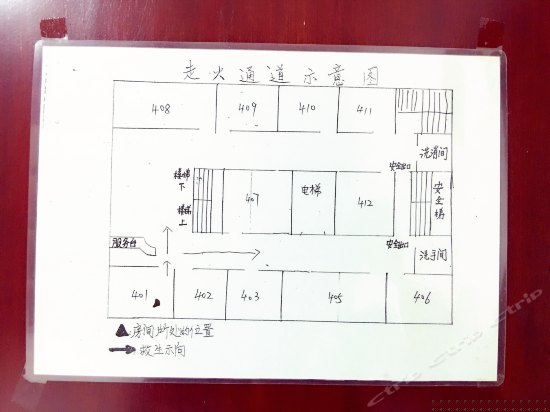 走火通道示意图
408
409
410
411
洗消间
安全出口
楼梯
下
407
电梯
412
安全梯
楼梯
上
服务台
安全出口
洗手间
401
402
403
405
406
房间所处的位置
救生示向
Ctrip Ctrip Ctrip